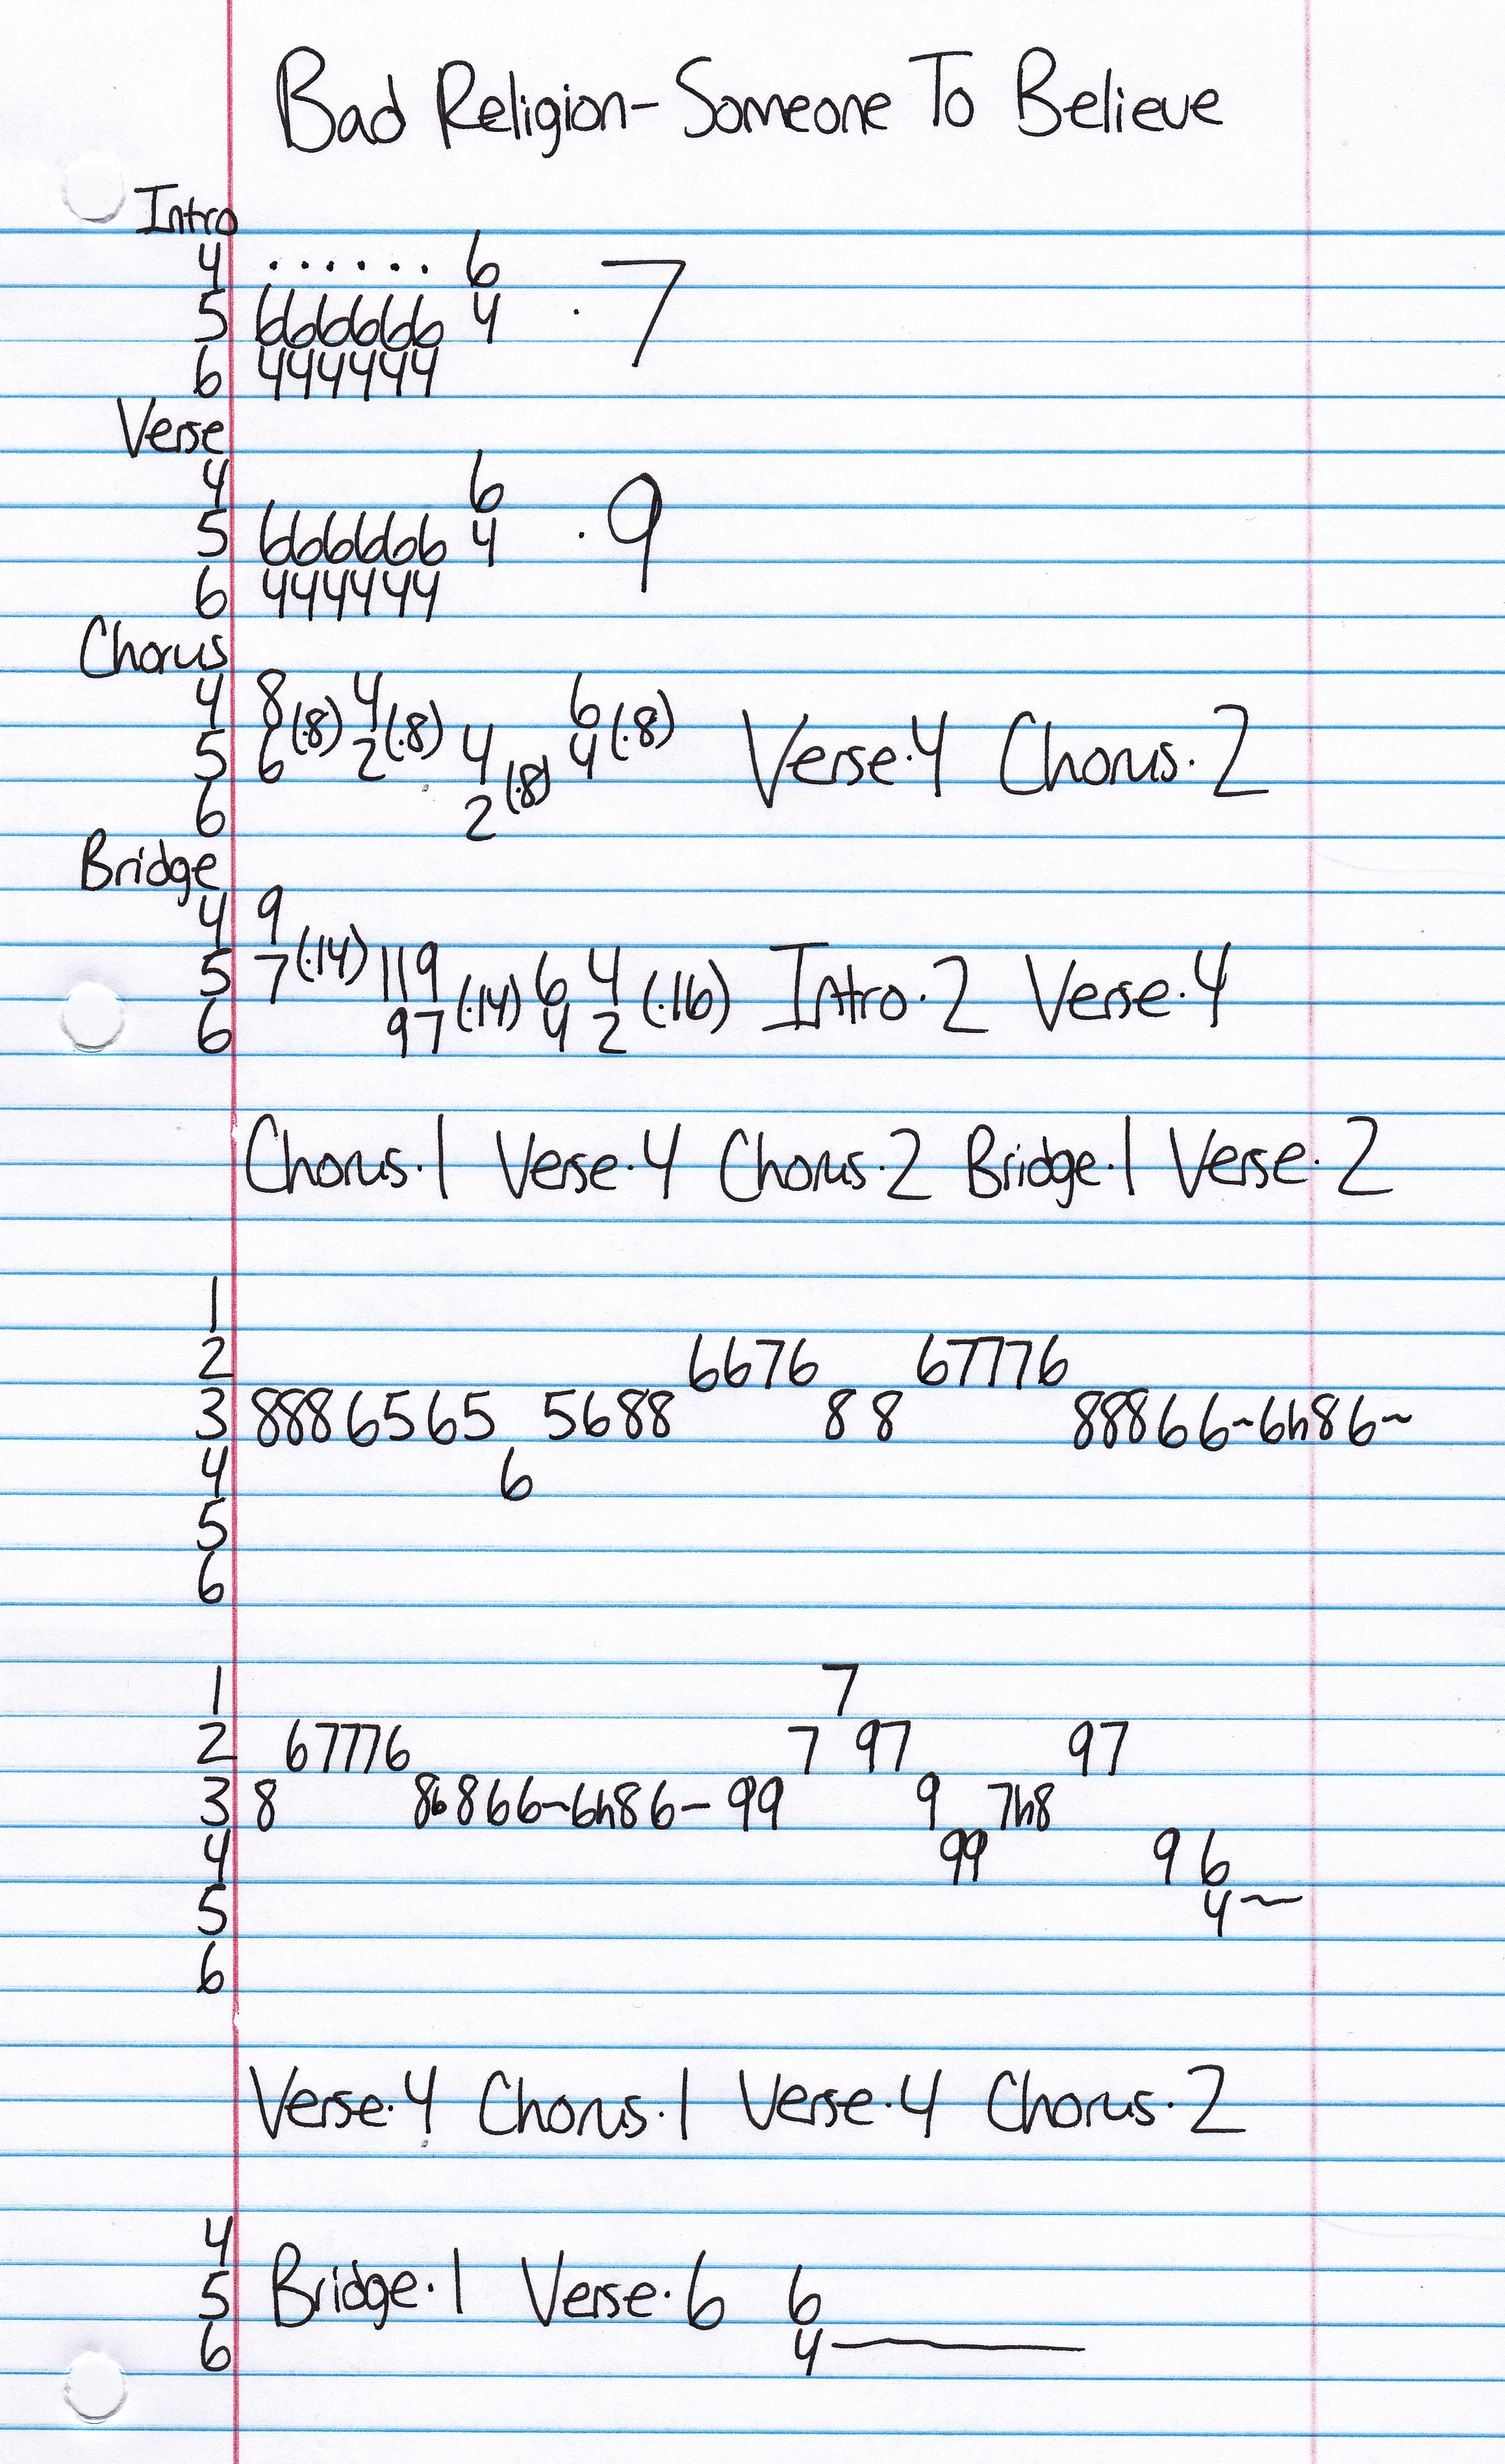 Bad Religion- Someone To Believe
Intro
4 . . . . . . 6
5 666666 4 · 7
6 444444
Verse
4 6
5 666666 4 · 9
6 444444
Chorus
4 8 (·8) 4 (·8) 6 (·8)
5 6 2 4 (·8) 4 Verse·4 Chorus·2
6 2
Bridge
4 9
5 7 (·14) 11 9 6 4 Intro·2 Verse·4
6 9 7 (·14) 4 2 (·16)
Chorus·1 Verse·4 Chorus·2 Bridge·1 Verse·2
1
2 6676 67776
3 8886565 5688 8 8 88866~6h86~
4 6
5
6
1 7
2 67776 7 97 97
3 8 86866~6h86~ 99 9 7h8
4 99 9 6
5 4~
6
Verse·4 Chorus·1 Verse·4 Chorus·2
4
5 Bridge·1 Verse·6 6
6 4